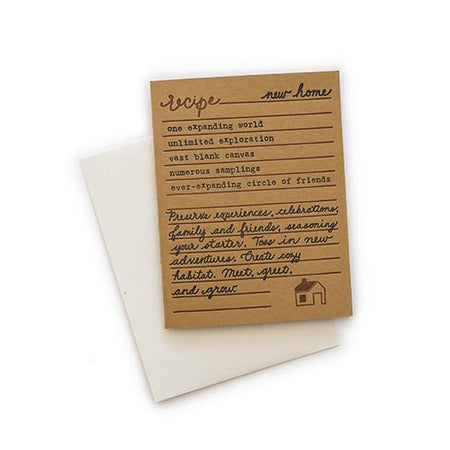 recipe new home
one expanding world
unlimited exploration
vast blank canvas
numerous samplings
ever-expanding circle of friends
Preserve experiences, celebrations,
family and friends, seasoning
your starter. Toss in new
adventures. Create cozy
habitat. Meet, greet,
and grow.